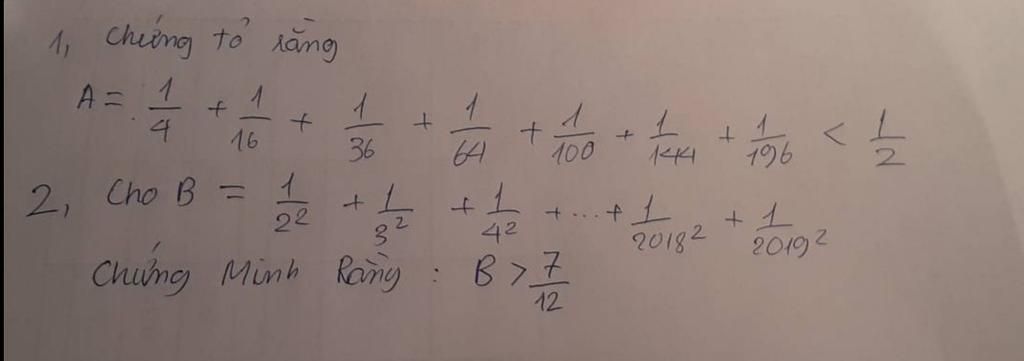 1, Chứng tỏ rằng
A = 1/4 + 1/16 + 1/36 + 1/64 + 1/100 + 1/144 + 1/196 < 1/2
2, Cho B = 1/2² + 1/3² + 1/4² + ... + 1/2018² + 1/2019²
Chứng Minh Rằng : B > 7/12